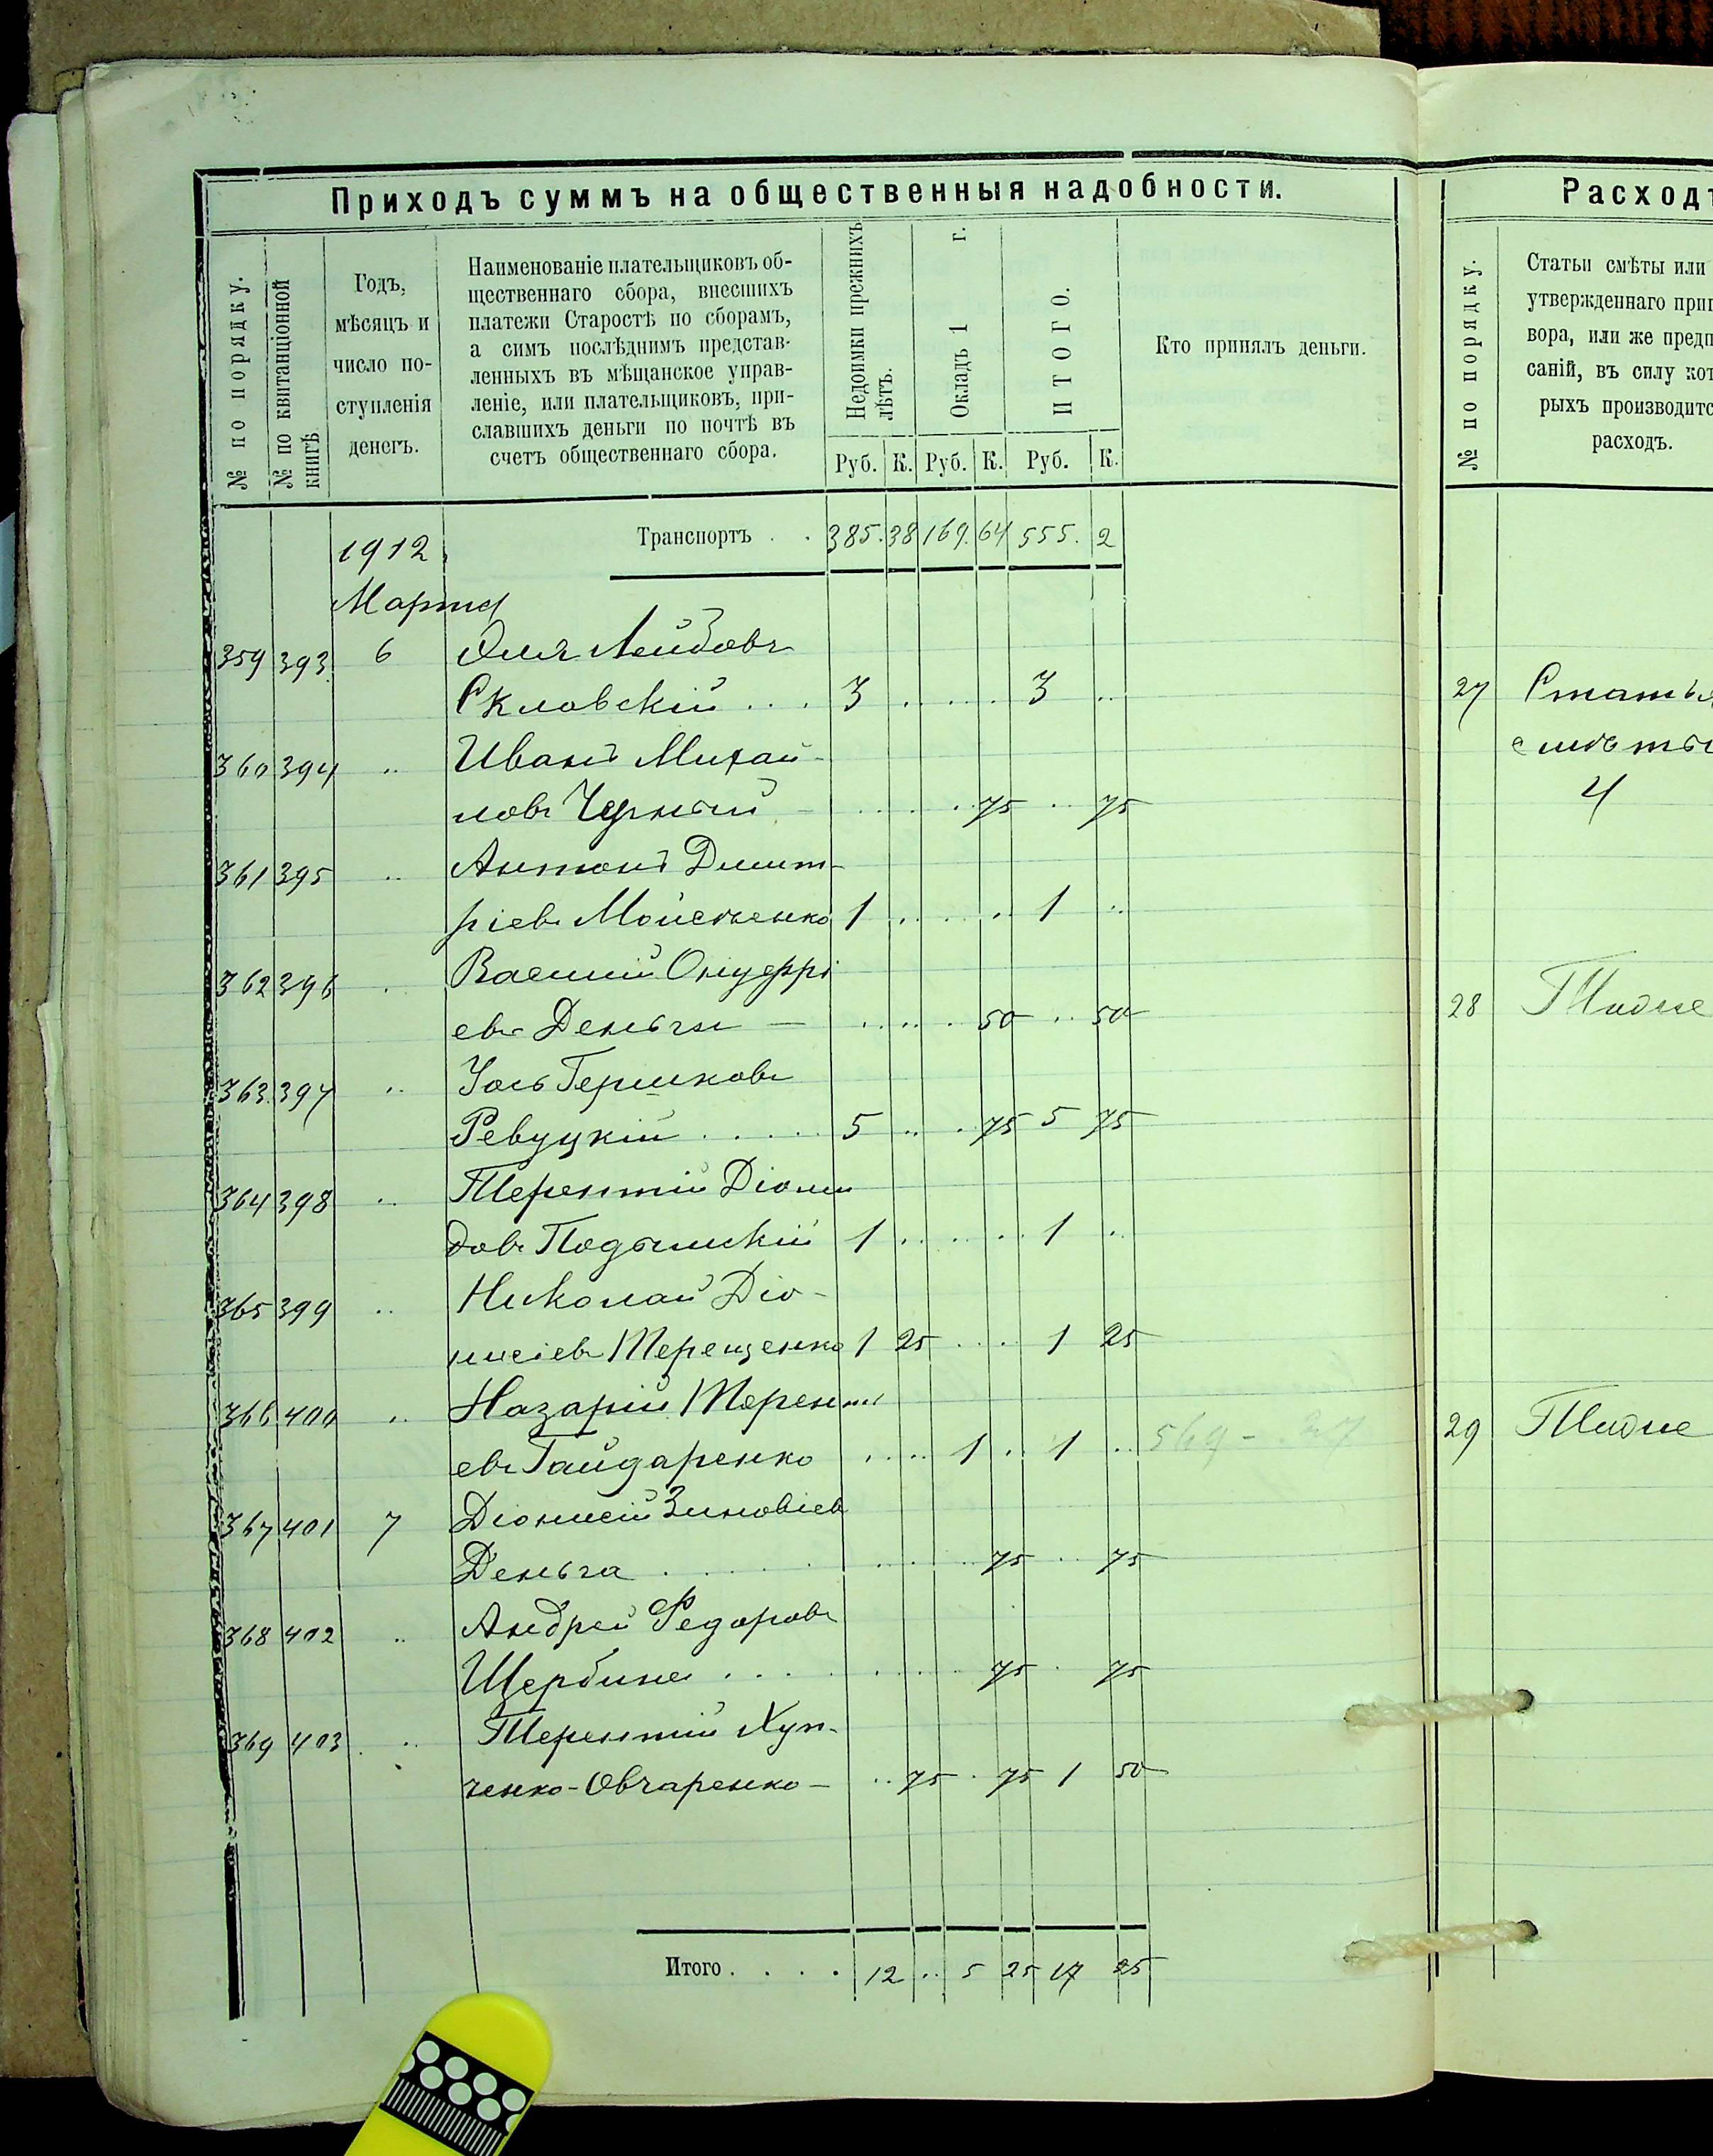 Приходъ суммъ на общественныя надобности.
№ по порядку.
№ по квитанціонной книгѣ
Годъ,
мѣсяцъ и
число по-
ступленія
денегъ.
Наименованіе плательщиковъ об-
щественнаго сбора, внесшихъ
платежи Старостѣ по сборамъ,
а симъ послѣднимъ представ-
ленныхъ въ мѣщанское управ-
леніе, или плательщиковъ, при-
славшихъ деньги по почтѣ въ
счетъ общественнаго сбора.
Недоимки прежнихъ лѣтъ.
Окладъ 1 г.
ИТОГО.
Кто принялъ деньги.
Руб. К. Руб. К. Руб. К.
Транспортъ . . 385. 38 169. 64 555. 2
1912
Марта
359 393 6 Лейбовъ
Скловскій . . . 3 . . . . . 3 ..
360 394 .. Иванъ Михай-
ловъ Черный 75 .. 75
361 395 .. Антонъ Дмит-
ріевъ Мойсеенко 1 1 ..
362 396 . Василій Онуфрі
евъ Деньга — 50 .. 50
363. 397 .. Гершковъ
Ревуцкій . . . . . 5 .. . 75 5 75
364 398 .. Терентій Діоми
довъ 1 1 ..
365 399 .. Николай Діо-
нисіевъ Терещенко 1 25 1 25
366 400 .. Назарій Терентi
евъ Гайдаренко 1 .. 1 ..
367 401 7 Діонисій Зиновіев
Деньга 75 .. 75
368 402 .. Андрей Федоровъ
Щербина . . . 75 . 75
369 403 .. Терентій
ченко-Овчаренко — .. 75 . 75 1 50
Итого . . . . 12 .. 5 25 17 25
Расходъ
№ по порядку.
Статьи смѣты или
утвержденнаго приг
вора, или же предп
саній, въ силу кот
рыхъ производитс
расходъ.
27 Статья
смѣты
4
28
29